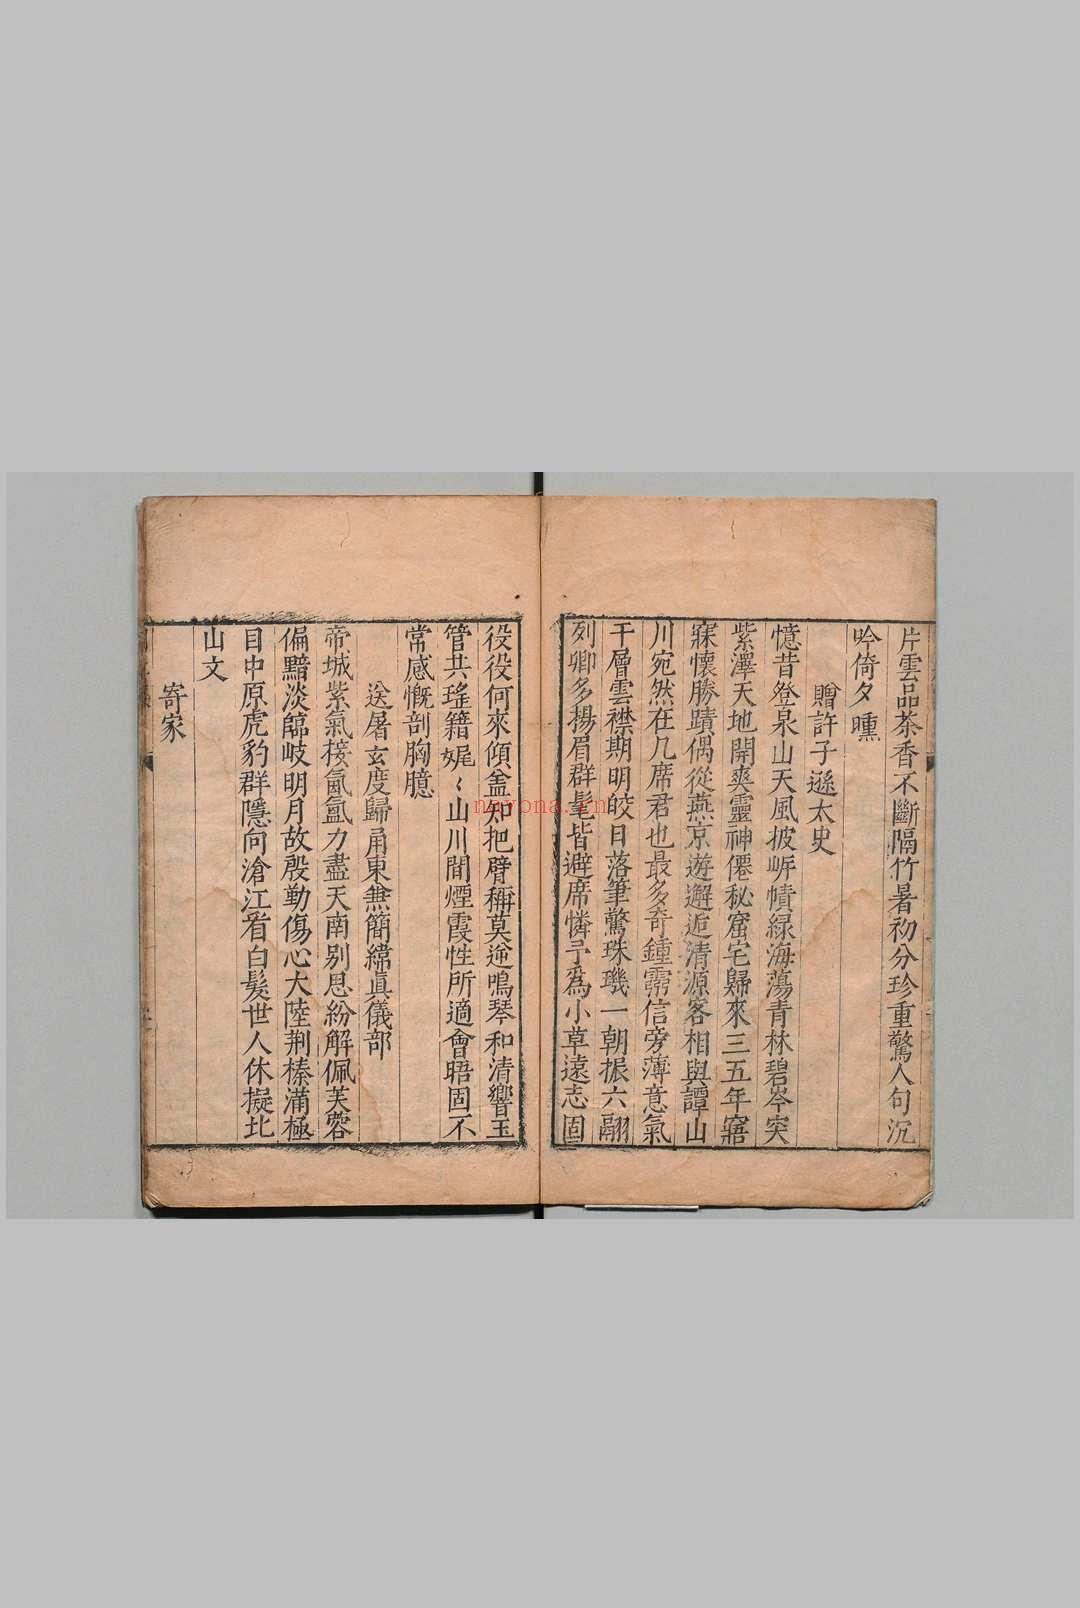 片雲品茶香不斷隔竹暑初分珍重驚人句沉
吟倚夕曛
贈許子遜太史
憶昔登泉山天風披岝幘綠海蕩青林碧岑突
紫澤天地開爽靈神僊秘窟宅歸來三五年寤
寐懷勝蹟偶從燕京遊邂逅清源客相與譚山
川宛然在几席君也最多奇鍾霛信旁薄意氣
干層雲襟期明皎日落筆驚珠璣一朝振六翮
列卿多揚眉群髦皆避席憐予爲小草遠志固
役役何來傾盖知把臂稱莫逆鳴琴和清響玉
管共瑤籍娓〻山川間煙霞性所適會晤固不
常感慨剖胸臆
送屠玄度歸甬東無簡緯眞儀部
帝城紫氣接氤氳力盡天南别思紛解佩芙蓉
偏黯淡臨岐明月故殷勤傷心大陸荆榛滿極
目中原虎豹群隱向滄江看白髮世人休擬北
山文
寄家
nayona.cn